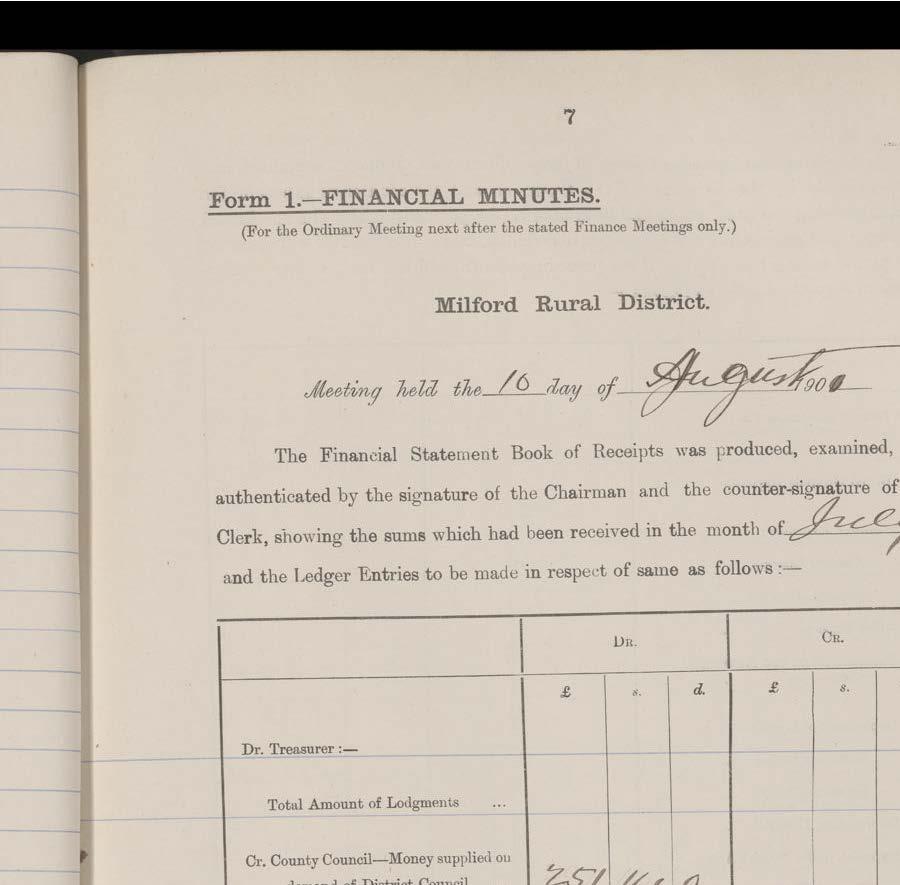 7
Form 1.—FINANCIAL MINUTES.
(For the Ordinary Meeting next after the stated Finance Meetings only.)
Milford Rural District.
Meeting held the 10 day of August 1900
The Financial Statement Book of Receipts was produced, examined,
authenticated by the signature of the Chairman and the counter-signature of
Clerk, showing the sums which had been received in the month of July
and the Ledger Entries to be made in respect of same as follows :—
DR. CR.
£ s. d. £ s.
Dr. Treasurer :—
Total Amount of Lodgments ...
Cr. County Council—Money supplied on
demand of District Council